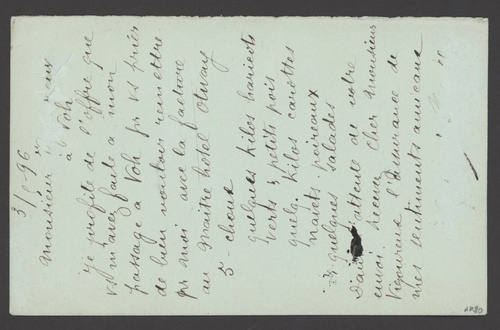 3/8-96
Monsieur
à Voh
Je profite de l'offre que
vs m'avez faite a mon
passage à Voh pr vs prier
de bien vouloir remettre
pr moi avec la facture
au maitre hotel Otway
5 - choux
quelques kilos haricots
verts & petits pois
quelq. kilos carottes
navets - poireaux
& quelques salades
Dans l'attente de votre
envoi recevez cher monsieur
Vigoureux l'assurance de
mes sentiments amicaux
AK80